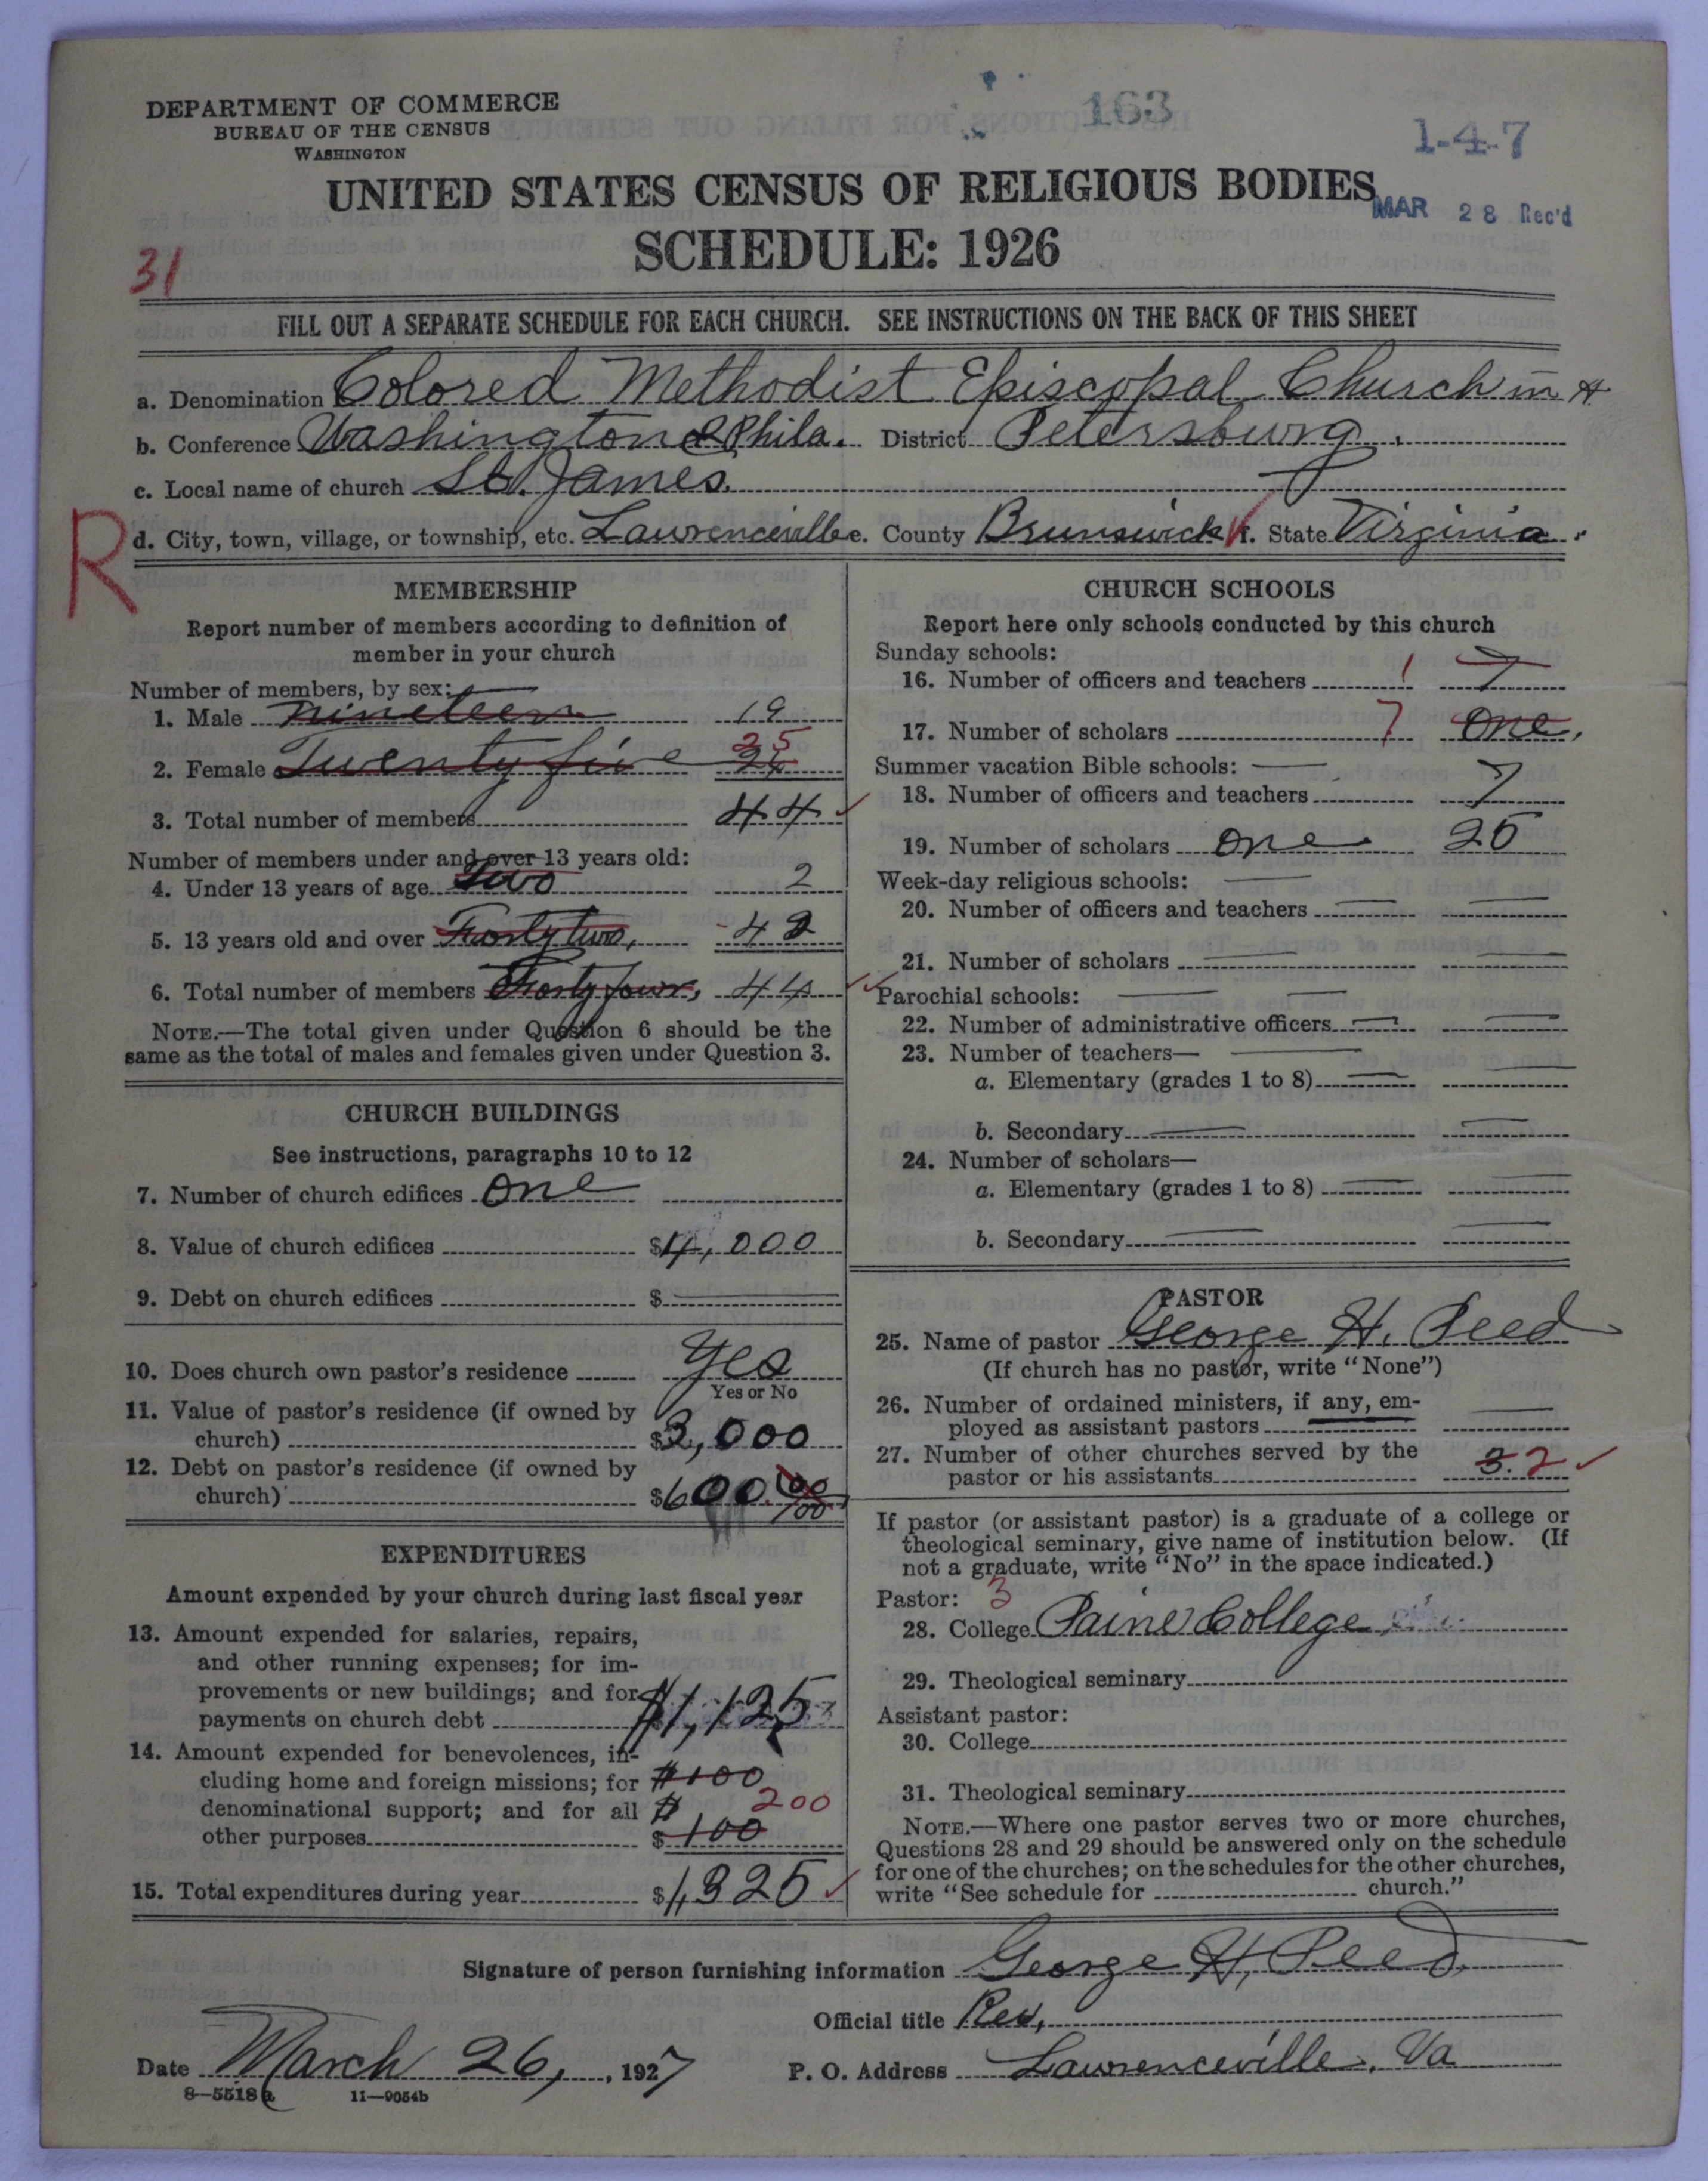 DEPARTMENT OF COMMERCE
BUREAU OF THE CENSUS
WASHINGTON
163
1-4-7
UNITED STATES CENSUS OF RELIGIOUS BODIES
MAR 28 Rec'd
SCHEDULE: 1926
31
FILL OUT A SEPARATE SCHEDULE FOR EACH CHURCH. SEE INSTRUCTIONS ON THE BACK OF THIS SHEET
a. Denomination Colored Methodist Episcopal Church in A
b. Conference Washington & Phila. District Petersburg.
c. Local name of church St. James.
R
d. City, town, village, or township, etc. Lawrenceville. County Brunswick. State Virginia.
MEMBERSHIP
Report number of members according to definition of
member in your church
Number of members, by sex:
1. Male Nineteen 19
2. Female Twenty five 25
3. Total number of members 44
Number of members under and over 13 years old:
4. Under 13 years of age Two 2
5. 13 years old and over Forty two, 42
6. Total number of members Forty four, 44
NOTE.—The total given under Question 6 should be the
same as the total of males and females given under Question 3.
CHURCH BUILDINGS
See instructions, paragraphs 10 to 12
7. Number of church edifices One
8. Value of church edifices $4,000
9. Debt on church edifices $
10. Does church own pastor's residence Yes
Yes or No
11. Value of pastor's residence (if owned by
church) $3,000
12. Debt on pastor's residence (if owned by
church) $600.00/100
EXPENDITURES
Amount expended by your church during last fiscal year
13. Amount expended for salaries, repairs,
and other running expenses; for im-
provements or new buildings; and for
payments on church debt $1,125
14. Amount expended for benevolences, in-
cluding home and foreign missions; for $100
denominational support; and for all $ 200
other purposes $100
15. Total expenditures during year $1,325
CHURCH SCHOOLS
Report here only schools conducted by this church
Sunday schools:
16. Number of officers and teachers 1 7
17. Number of scholars 7 One,
Summer vacation Bible schools:
18. Number of officers and teachers 7
19. Number of scholars One 25
Week-day religious schools:
20. Number of officers and teachers
21. Number of scholars
Parochial schools:
22. Number of administrative officers
23. Number of teachers—
a. Elementary (grades 1 to 8)
b. Secondary
24. Number of scholars—
a. Elementary (grades 1 to 8)
b. Secondary
PASTOR
25. Name of pastor George H. Reed
(If church has no pastor, write "None")
26. Number of ordained ministers, if any, em-
ployed as assistant pastors
27. Number of other churches served by the
pastor or his assistants 3. 2
If pastor (or assistant pastor) is a graduate of a college or
theological seminary, give name of institution below. (If
not a graduate, write "No" in the space indicated.)
Pastor: 3
28. College Paine College,
29. Theological seminary
Assistant pastor:
30. College
31. Theological seminary
NOTE.—Where one pastor serves two or more churches,
Questions 28 and 29 should be answered only on the schedule
for one of the churches; on the schedules for the other churches,
write "See schedule for church."
Signature of person furnishing information George H. Reed.
Official title Rev.
Date March 26, 1927 P. O. Address Lawrenceville, Va
8—5518a 11—9054b